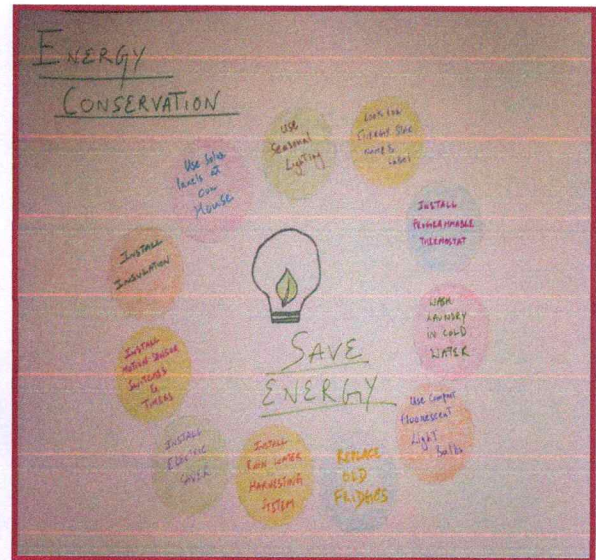 ENERGY
CONSERVATION
Use
Seasonal
Lighting
Look for
Energy Star
Label
INSTALL
PROGRAMMABLE
THERMOSTAT
WASH
LAUNDRY
IN COLD
WATER
Use Compact
fluorescent
Light
Bulbs
REPLACE
OLD
FRIDGES
INSTALL
RAIN WATER
HARVESTING
SYSTEM
INSTALL
ELECTRIC
SAVER
INSTALL
MOTION SENSOR
SWITCHES
&
TIMERS
INSTALL
INSULATION
Use Solar
Panels at
our
House
SAVE
ENERGY